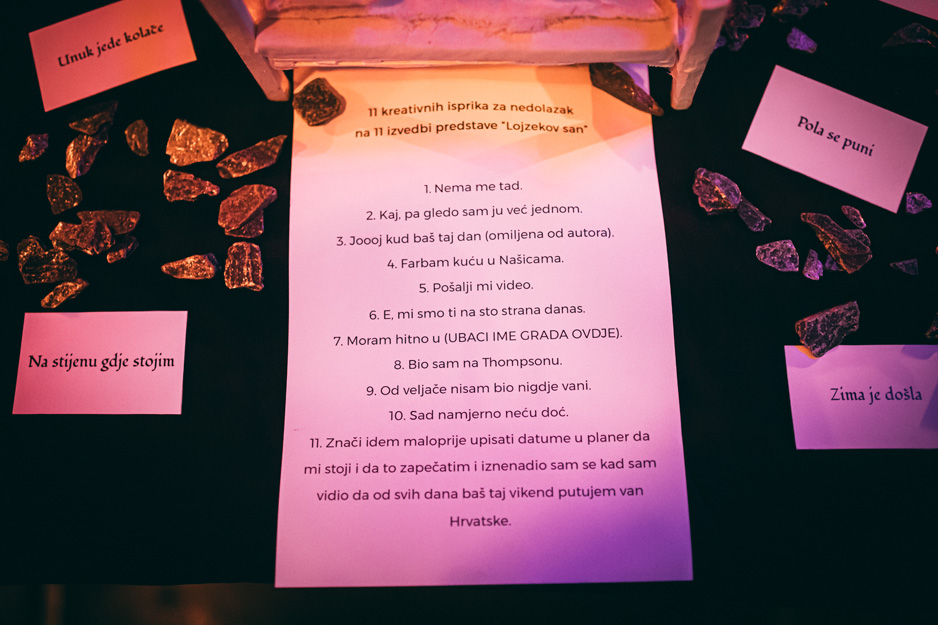 Unuk jede kolače
11 kreativnih isprika za nedolazak
na 11 izvedbi predstave "Lojzekov san"
Pola se puni
1. Nema me tad.
2. Kaj, pa gledo sam ju već jednom.
3. Joooj kud baš taj dan (omiljena od autora).
4. Farbam kuću u Našicama.
5. Pošalji mi video.
6. E, mi smo ti na sto strana danas.
7. Moram hitno u (UBACI IME GRADA OVDJE).
8. Bio sam na Thompsonu.
9. Od veljače nisam bio nigdje vani.
10. Sad namjerno neću doć.
11. Znači idem maloprije upisati datume u planer da
mi stoji i da to zapečatim i iznenadio sam se kad sam
vidio da od svih dana baš taj vikend putujem van
Hrvatske.
Na stijenu gdje stojim
Zima je došla